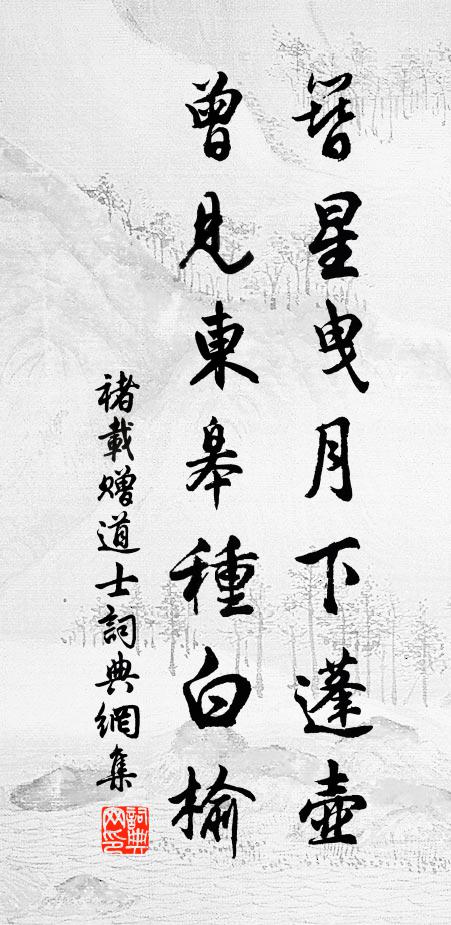 簪星曳月下蓬壺
曾見東皋種白榆
褚載贈道士詞典網集
詞典網印